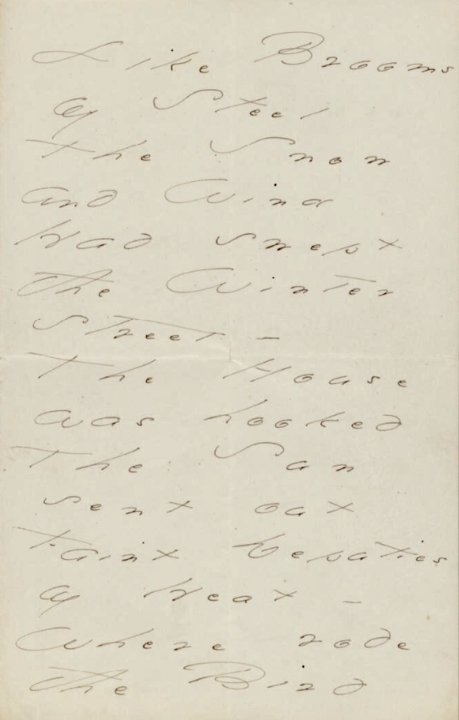 Like Brooms
of Steel
The Snow
and Wind
Had swept
the Winter
Street -
The House
was hooked
The Sun
sent out
Faint Deputies
of Heat -
Where rode
the Bird